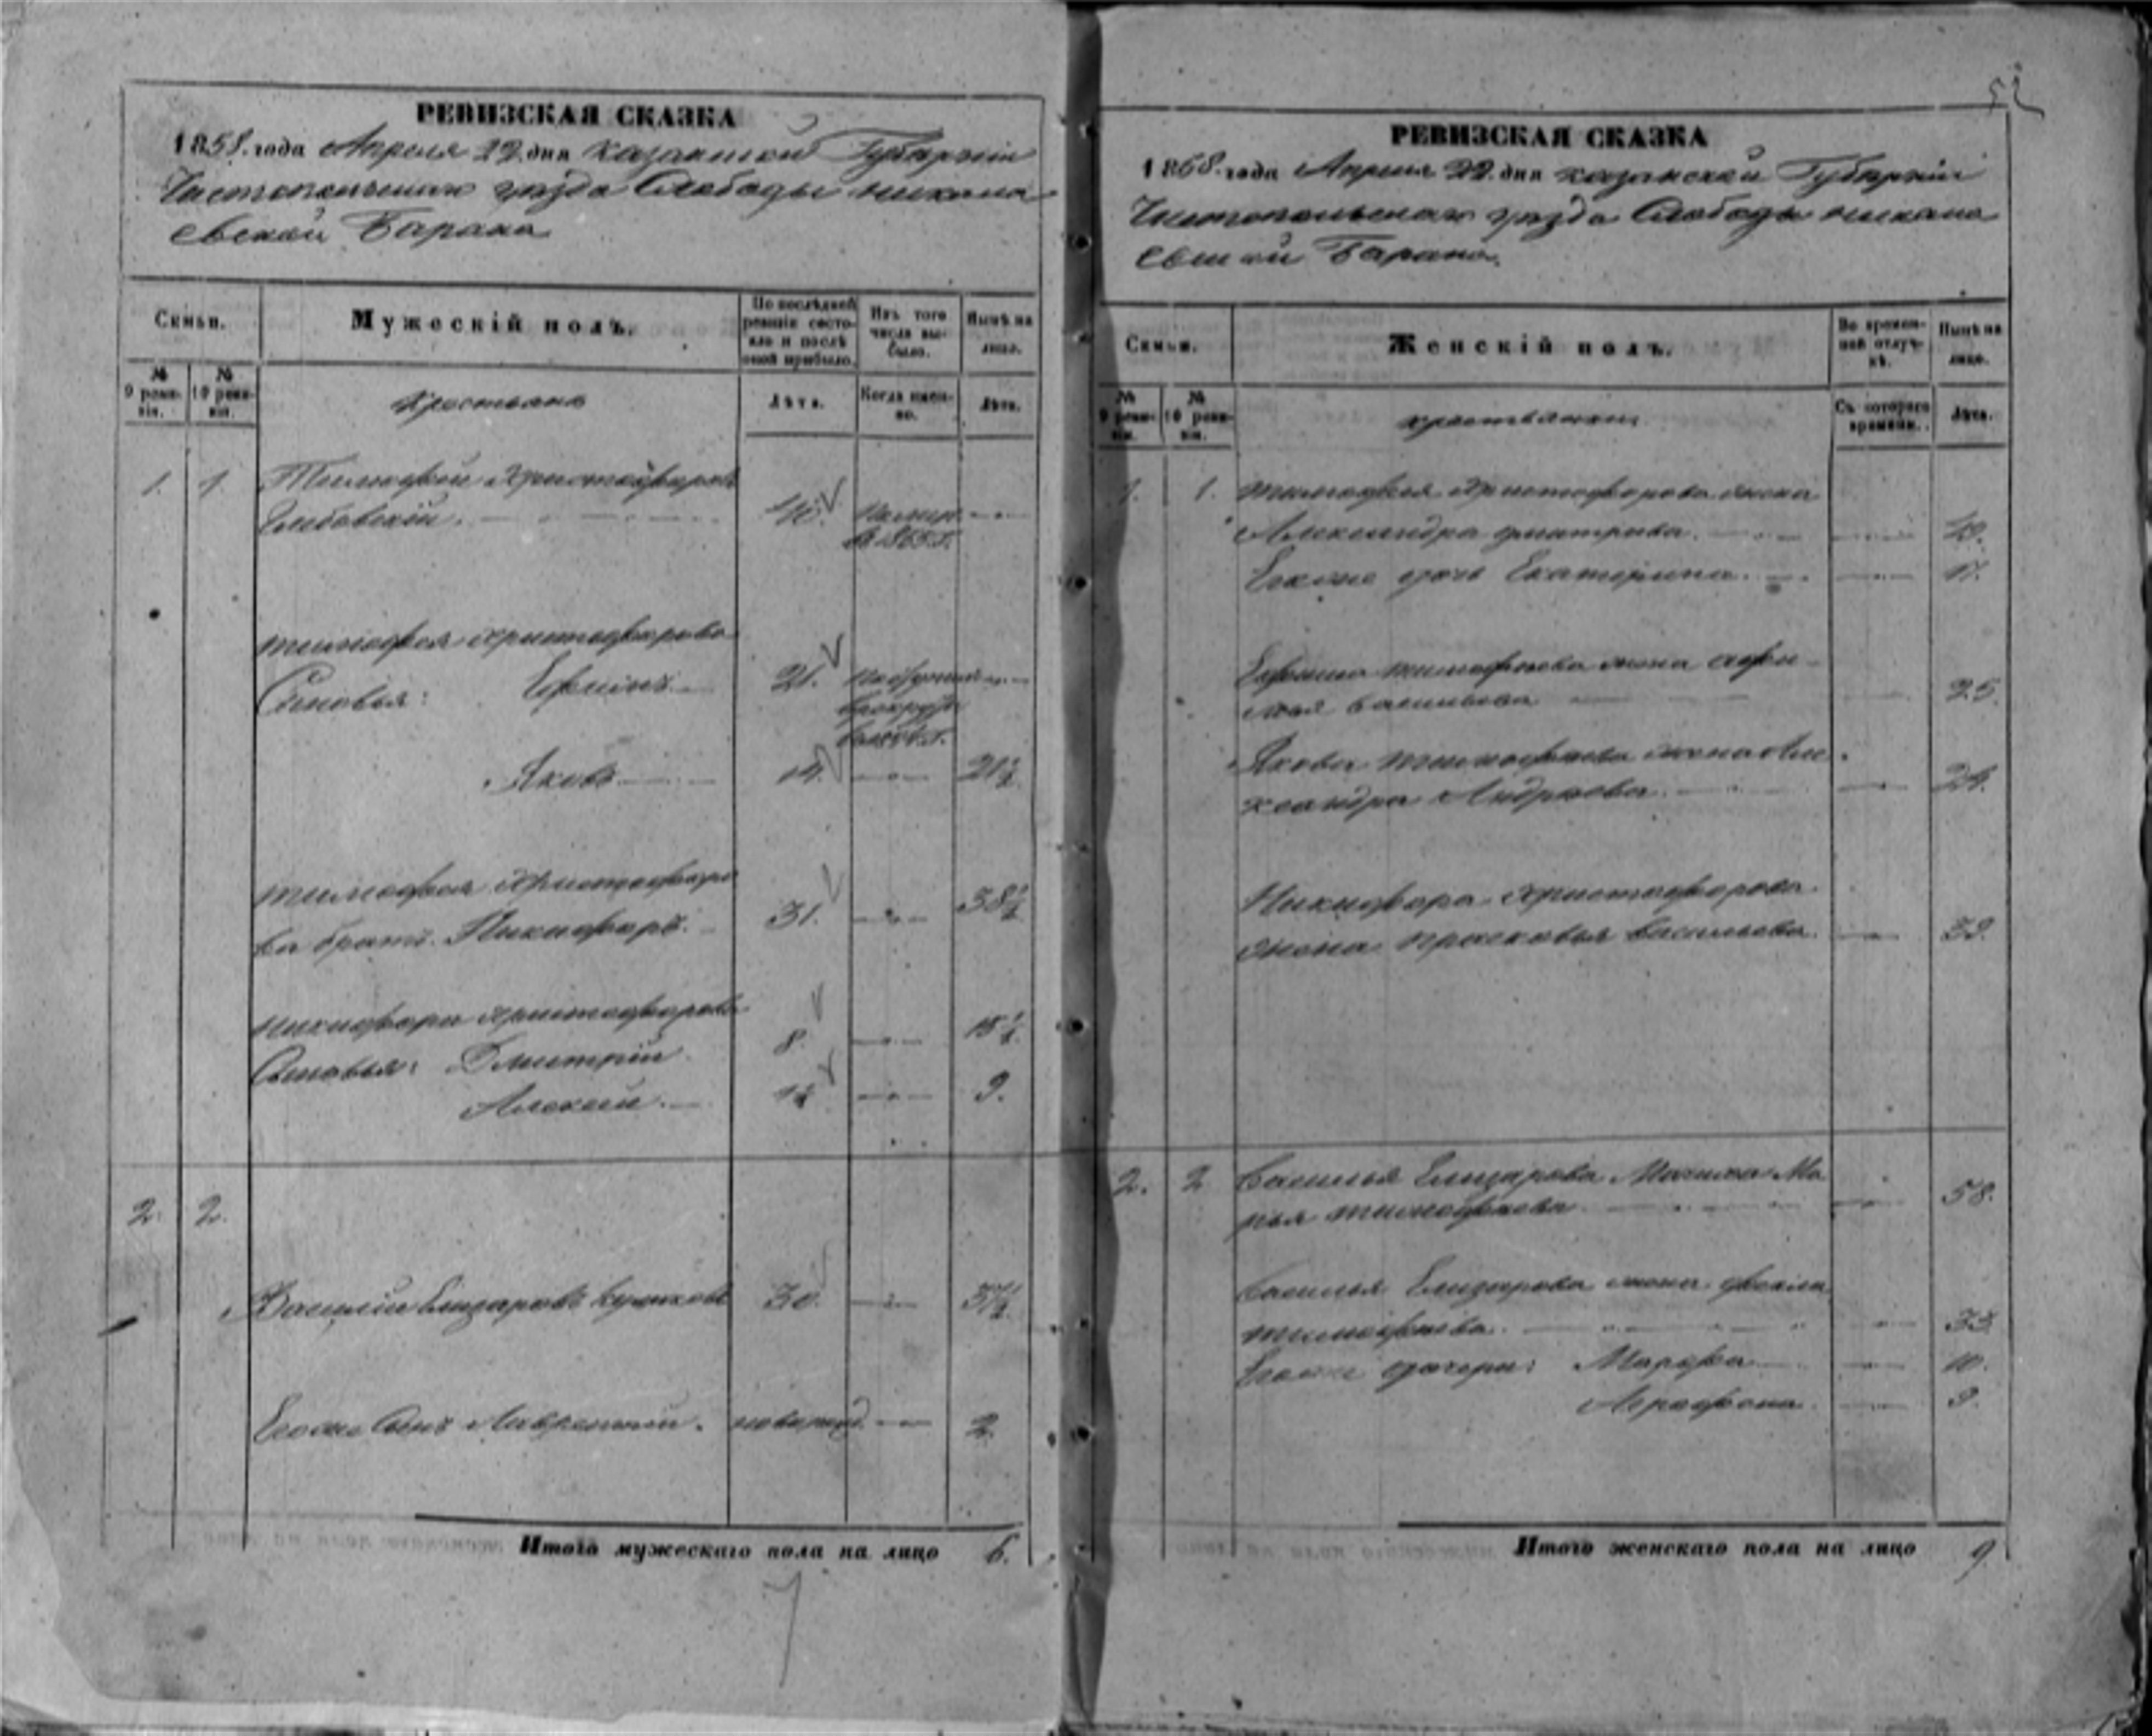 РЕВИЗСКАЯ СКАЗКА
1858. года Апреля 22. дня Казанской Губерніи
Чистопольскаго уезда Слободы Никола
евской Барана
Семьи.
Мужескій полъ.
По последней ревизіи состояло и после оной прибыло.
Изъ того числа выбыло.
Ныне на лицо.
№ 9 ревизіи.
№ 10 ревизіи.
Крестьяне
Лета.
Когда именно.
Лета.
1. 1. Тимофей Христофоровъ
46. помер.
в 185 г.
Тимофея Христофорова
Сыновья: Ефимъ 21.
Яковъ 14. 21½
Тимофея Христофоро
ва братъ Никифоръ. 31. 38½
Никифора Христофорова
Сыновья: Дмитрій 8. 15½
Алексей. 9.
2. 2.
Василій Елизаровъ Куликовъ 30. 37½
Егоже Сынъ Лаврентій. новорожд. 2.
Итого мужескаго пола на лицо 6.
7
РЕВИЗСКАЯ СКАЗКА
1858. года Апреля 22. дня Казанской Губерніи
Чистопольскаго уезда Слободы Никола
евской Барана.
Семьи.
Женскій полъ.
Во временной отлучке.
Ныне на лицо.
№ 9 ревизіи.
№ 10 ревизіи.
крестьянки
Съ котораго времени.
Лета.
1. 1. Тимофея Христофорова жена
Александра Дмитриева.
Егоже дочь Екатерина. 17.
Ефима Тимофеева жена Афи
мья Васильева 25.
Якова Тимофеева жена Але
ксандра Андреева. 24.
Никифора Христофорова
жена Прасковья Васильева. 39.
2. 2 Василья Елизарова Мачиха Ма
рья Тимофеева 58.
Василья Елизарова жена Фекла
Тимофеева. 33
Егоже дочери: Марфа 10.
Аграфена. 9.
Итого женскаго пола на лицо 9